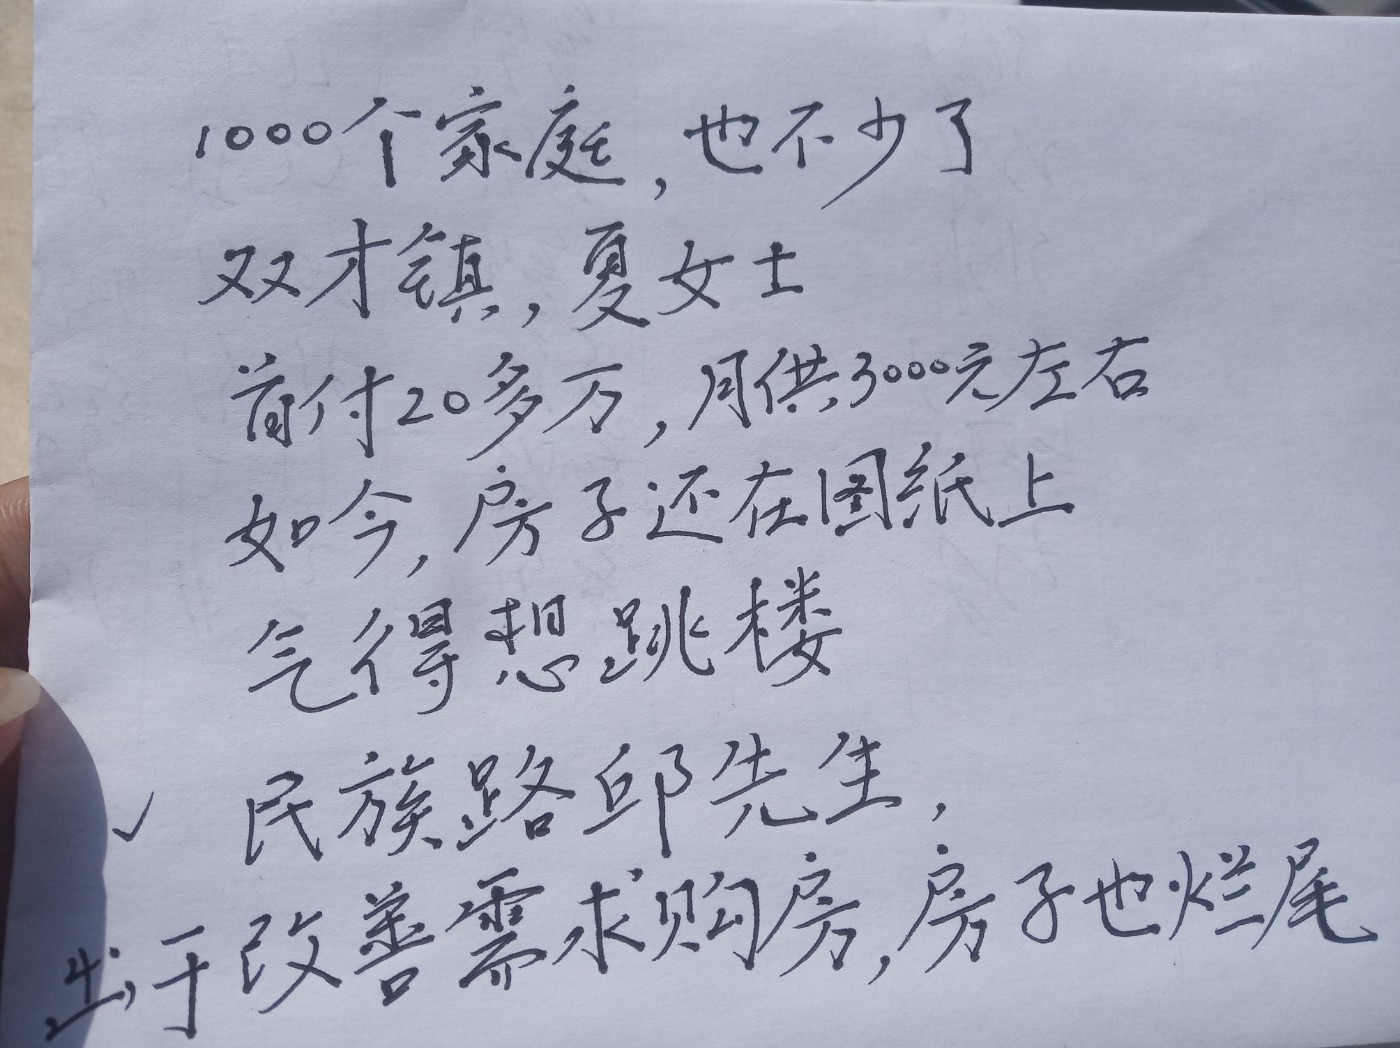 1000个家庭,也不少了
双才镇,夏女士
首付20多万,月供3000元左右
如今,房子还在图纸上
气得想跳楼
✓ 民族路邱先生,
出于改善需求购房,房子也烂尾